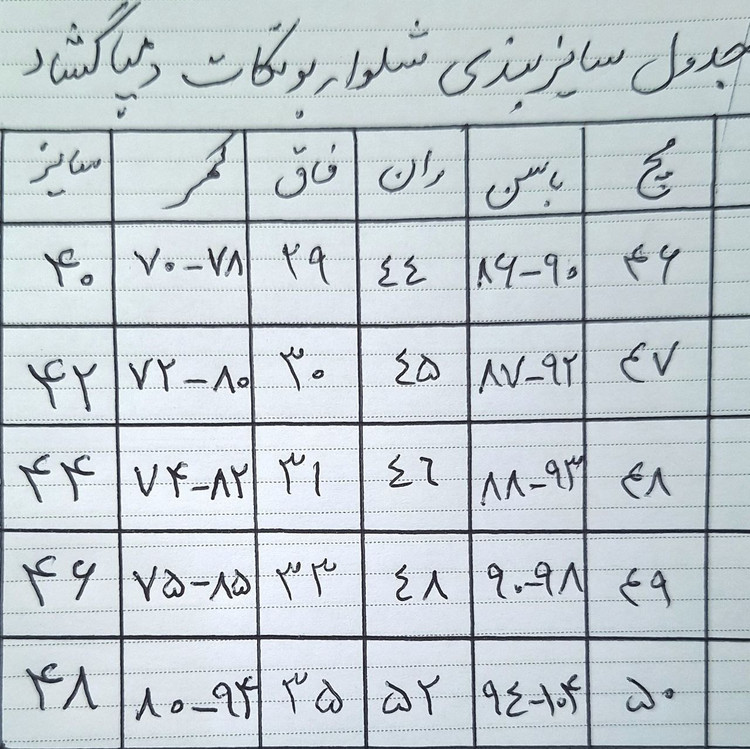 جدول سایزبندی شلوار بوتکات دمپا گشاد
مچ باسن ران فاق کمر سایز
۴۶ ۸۶-۹۰ ٤٤ ۲۹ ۷۰-۷۸ ۴۰
٤۷ ۸۷-۹۲ ٤۵ ۳۰ ۷۲-۸۰ ۴۲
٤۸ ۸۸-۹۳ ٤٦ ۳۱ ۷۴-۸۲ ۴۴
٤۹ ۹۰-۹۸ ٤۸ ۳۳ ۷۵-۸۵ ۴۶
۵۰ ۹٤-۱۰۴ ۵۲ ۳۵ ۸۰-۹۴ ۴۸